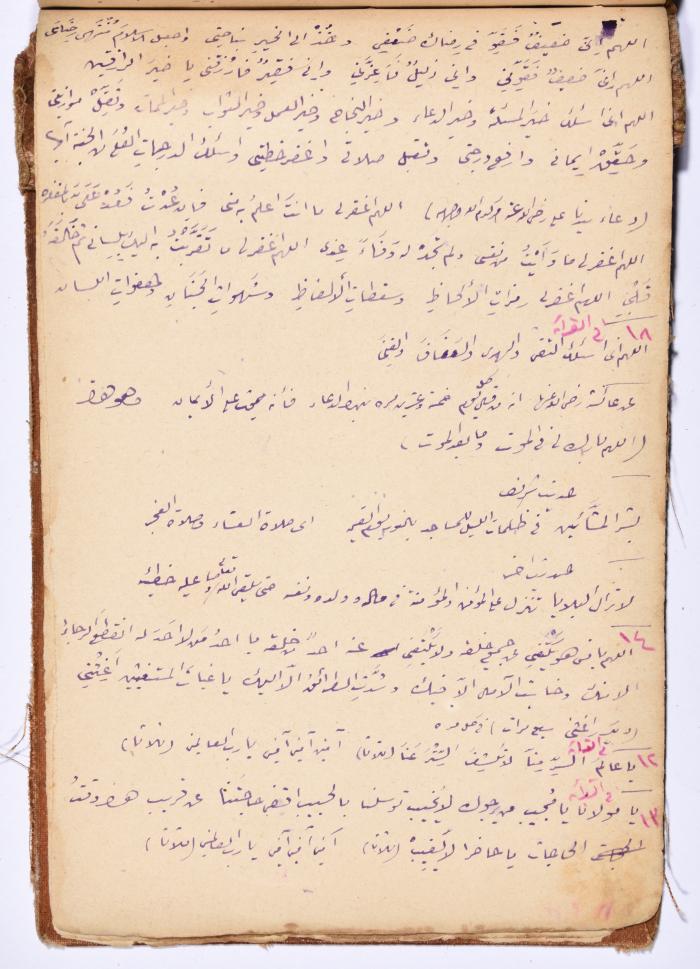 اللهم إني ضعيفٌ فَقَوِّ في رضاك ضعفي وخُذْ إلى الخير بناصيتي واجعل الاسلام مُنْتَهى رضائي
اللهم إني ضعيفٌ فَقَوِّني واني ذليلٌ فَأَعِزَّني واني فقيرٌ فارزقني يا خيرَ الرازقين
اللهم اني اسئلك خيرَ المسئلة وخير الدعاء وخير النجاح وخير العمل وخير الثواب وخير الحياة وثَقِّلْ موازيني
وحَقِّقْ ايماني وارفع درجتي وتقبل صلاتي واغفر خطيئتي واسئلك الدرجات العُلى من الجنة آمين
(دعاء سيدنا علي رضي الله عنه وكرم الله وجهه) اللهم اغفر لي ما انتَ اعلمُ به مني فإن عُدْتُ فَعُدْ عَلَيَّ بالمغفرة
اللهم اغفر لي ما وَأَيْتُ من نفسي ولم تَجِدْ له وَفَاءً عندي اللهم اغفر لي ما تَقَرَّبْتُ به اليك بلساني ثم خَالَفَهُ
قَلْبي اللهم اغفر لي رمزاتِ الألحاظِ وسقطاتِ الألفاظِ وشهواتِ الجَنَانِ وهفواتِ اللسان
١٨
اللهم اني اسئلك التقى والهدى والعَفَافَ والغِنَى
عن عائشة رضي الله عنها ان من قرأ كل يوم خمسة وعشرين مرة بهذا الدعاء فأنه يموت على الأيمان وهو هذا
(اللهم بارك لي في الموت وما بعد الموت)
حديث شريف
بشر المشَّائين في ظلمات الليل للمساجد بالنور يوم القيمة اى صلاة العشاء وصلاة الفجر
حديث اخر
لا تزال البلايا تنزل على المؤمن والمؤمنة في ماله وولده ونفسه حتى يلقى الله تعالى وما عليه خطيئة
١٤ اللهم يا من هو يَكْتَفي عن جميع خلقه ولا يَكْتَفي عنه احدٌ من خلقه يا احدُ مَن لا احَدَ له انقطع الرجاءُ
الا منك وخابت الآمال الا فيك وسُدَّتِ الطرائقُ الّا اليك يا غياثَ المستغيثين اَغِثْني
١٢ يا عالمَ السِّرِّ مِنَّا لا تكشِفِ السِّتْرَ عَنَّا (ثلاثا) آمين آمين آمين يا رب العالمين (ثلاثا)
١٣ يا مولانا يا مُجيب من يرجوك لا يَخيب توسلنا بالحبيب اقضِ حاجتنا عن قريب هذا وقتُ
الحاجات يا حاضرا لا يَغيبْ (ثلاثا) آمين آمين آمين يا رب العالمين (ثلاثا)